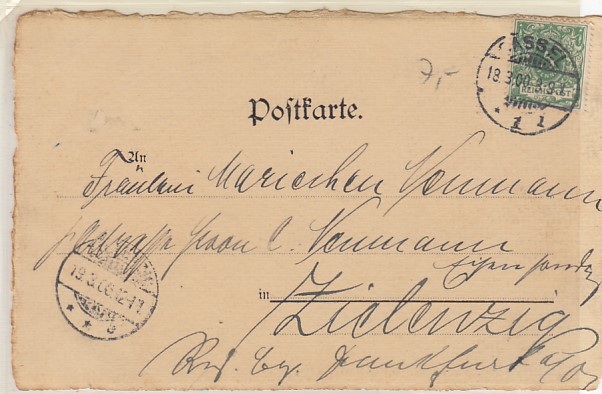 CASSEL
18.3.00.
* 1 1
REICHSPOST
7,-
Postkarte.
An
Fräulein Mariechen Neumann
Herrn C. Neumann
19.3.00.12-1N
in Zielenzig
Reg. bez. Frankfurt a/O